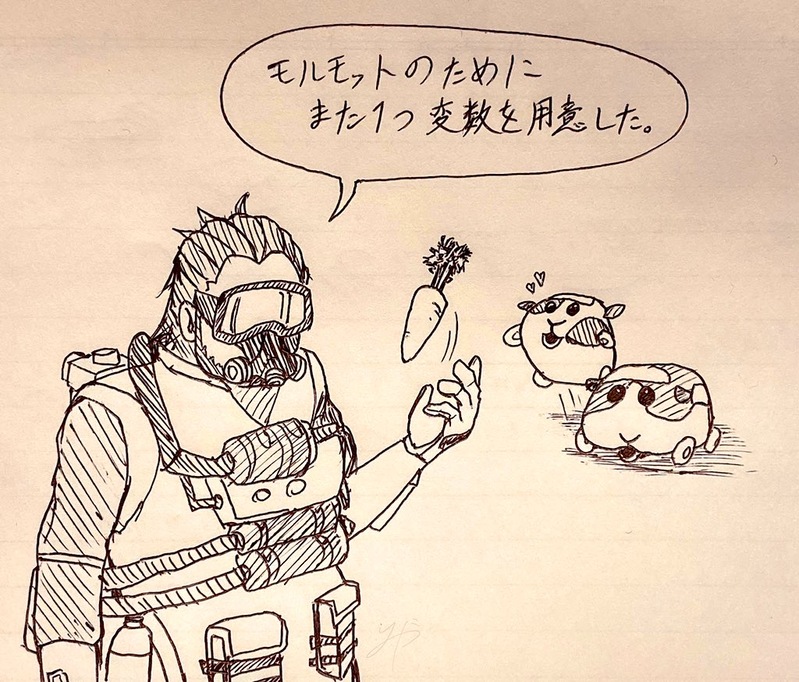 モルモットのために
また1つ変数を用意した。